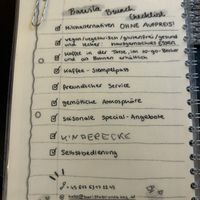 Barista Brunch
Checkliste
Milchalternativen OHNE AUFPREIS!
vegan/vegetarisch/glutenfrei/gesund
und lecker hausgemachtes Essen
Kaffee in der Tasse, im to-go-Becher
und als Bohnen erhältlich
Kaffee-Stempelpass
freundlicher Service
gemütliche Atmosphäre
saisonale Special-Angebote
KINDERECKE
Selbstbedienung